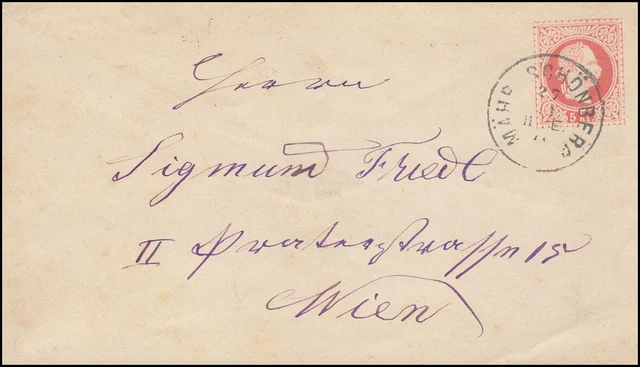 Herrn
Sigmund Friedl
II Praterstrasse 15
Wien
MÄHR. SCHÖNBERG
5